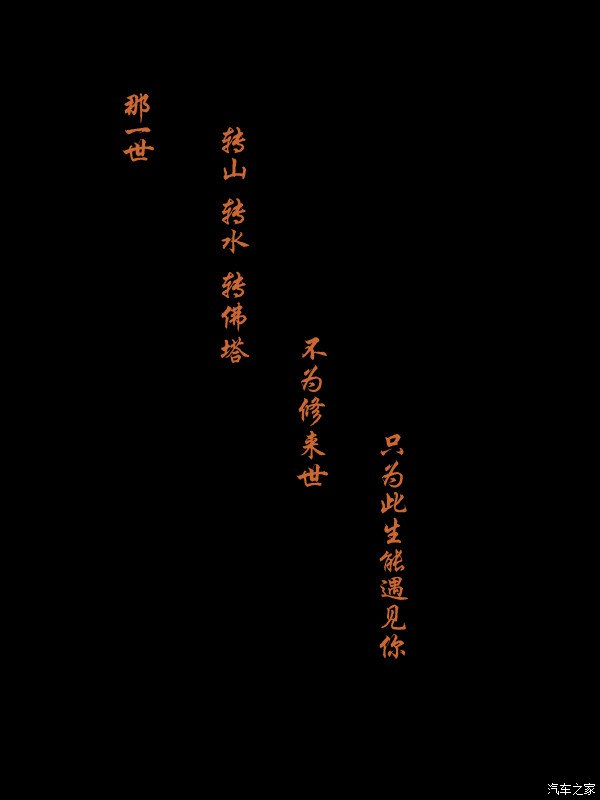 那一世
转山 转水 转佛塔
不为修来世
只为此生能遇见你
汽车之家